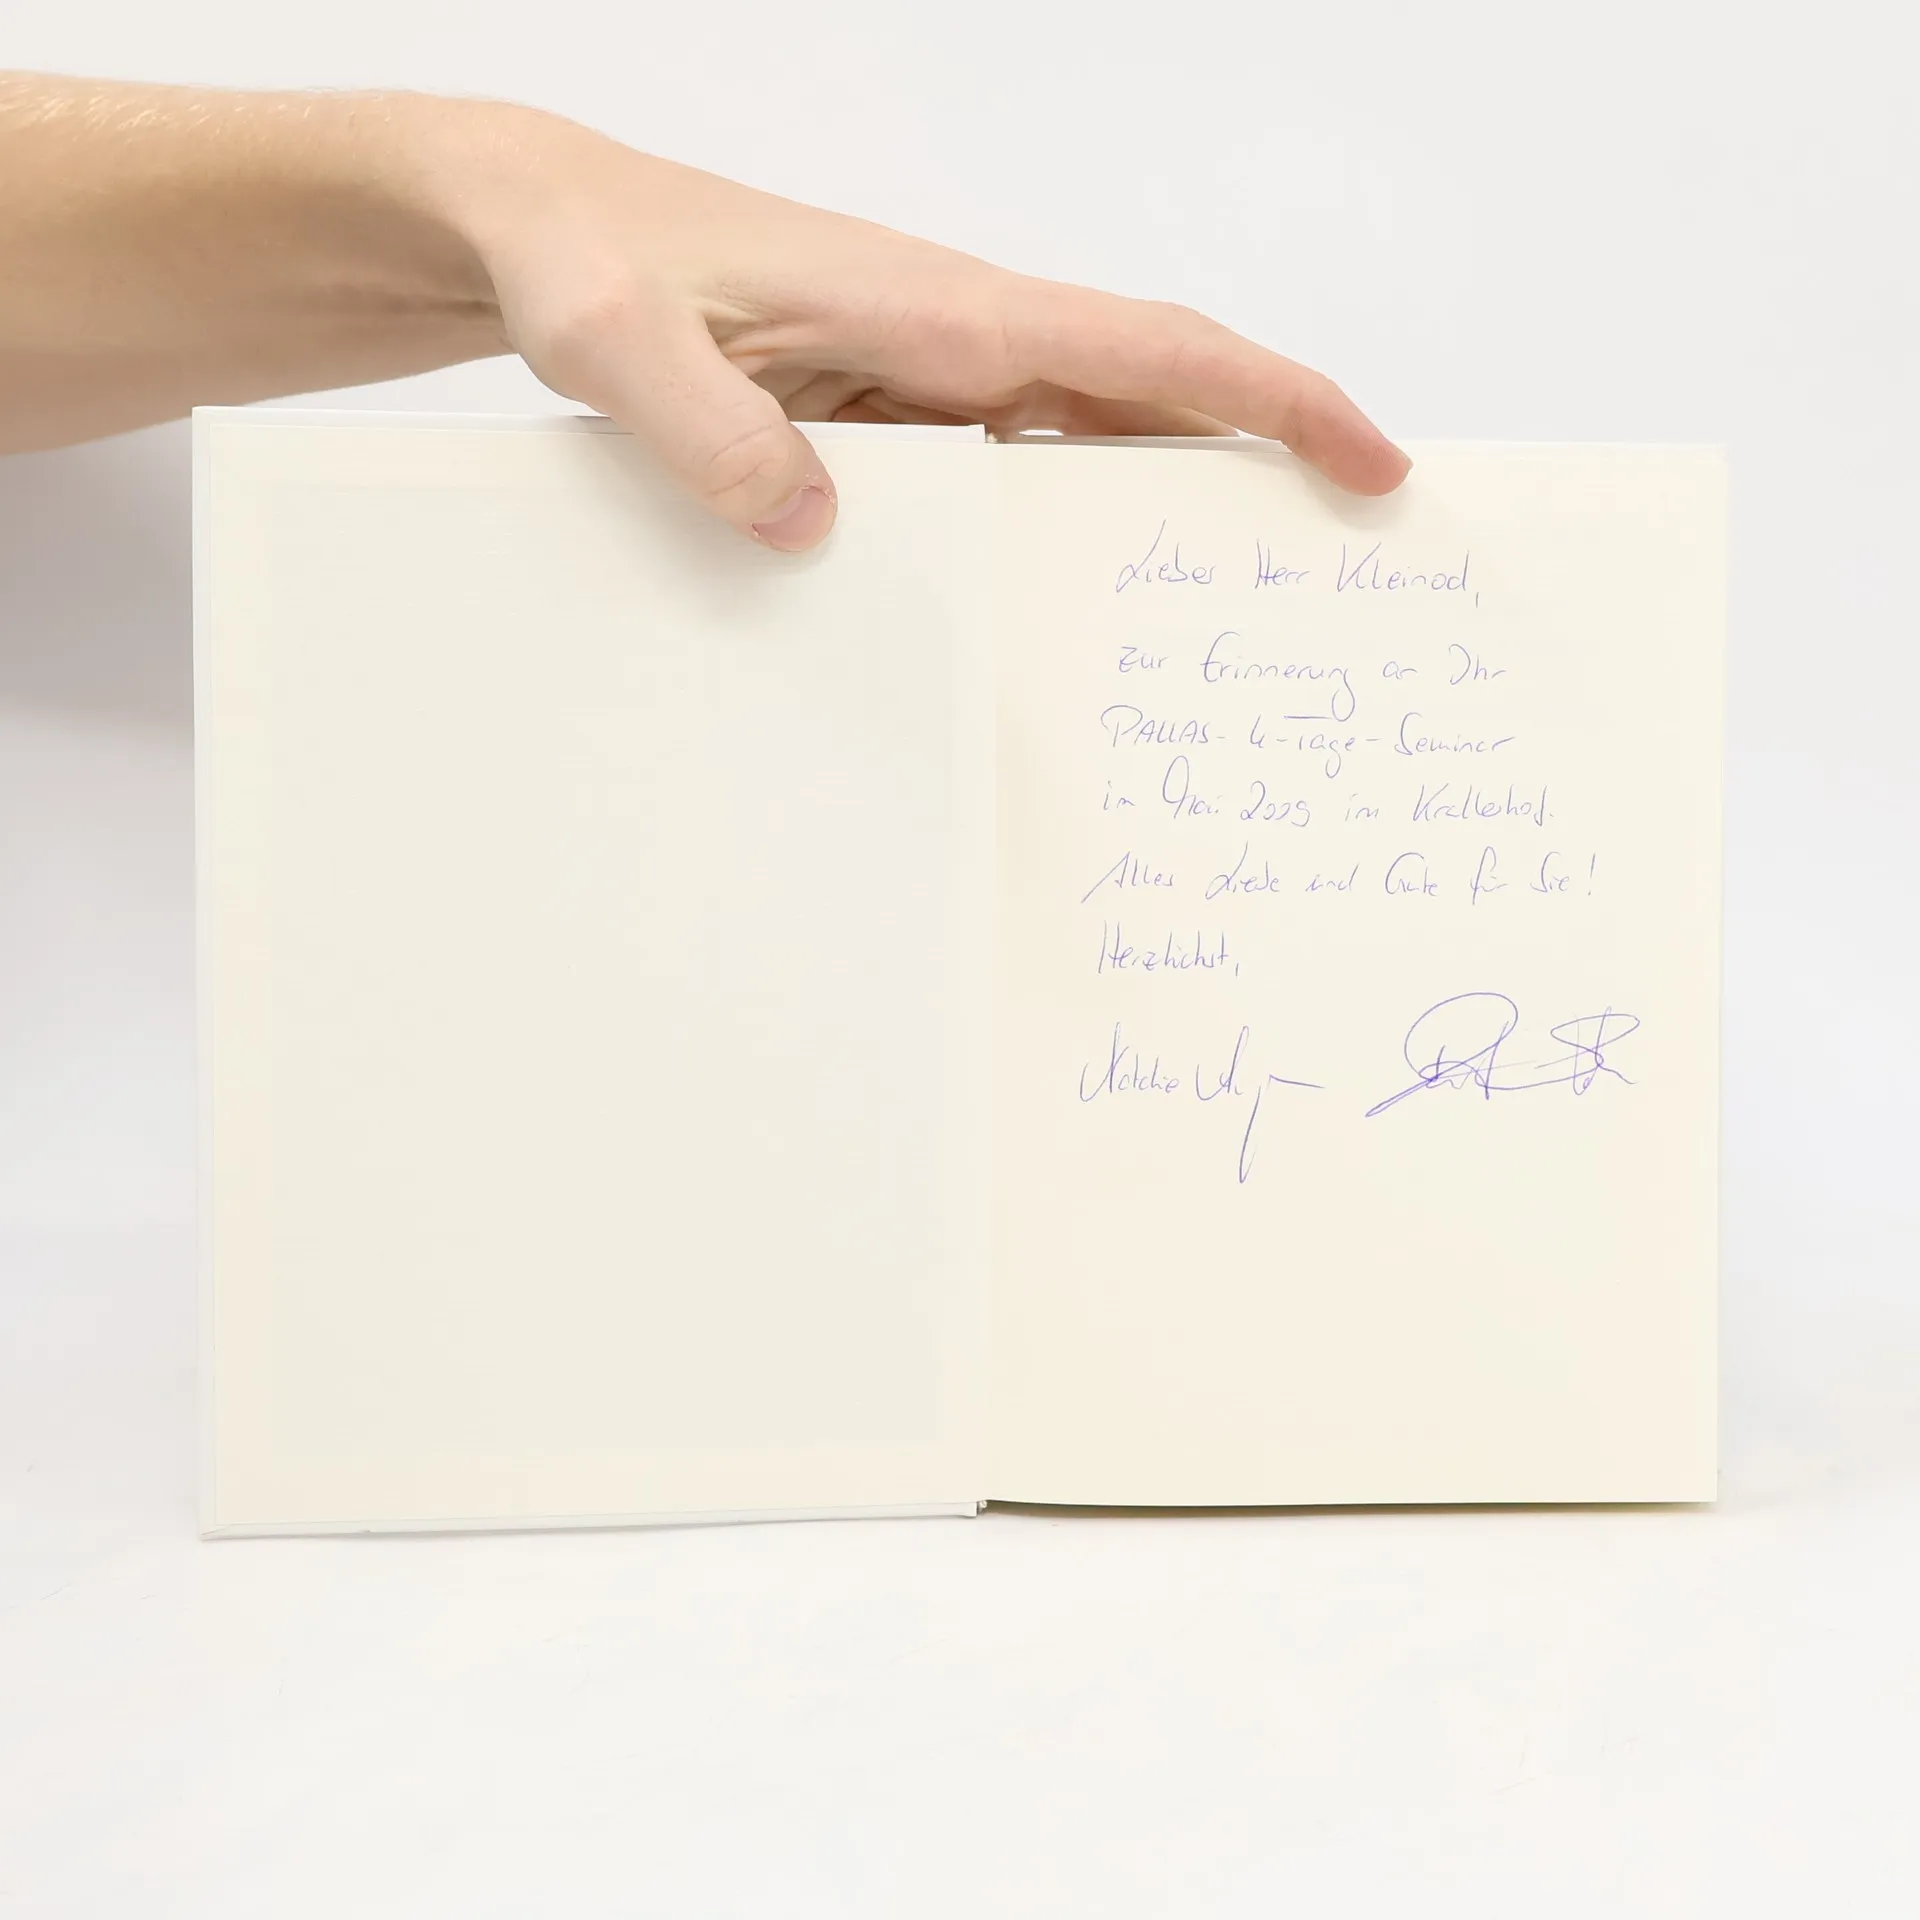 Lieber Herr Kleinod,
zur Erinnerung an Ihr
PALLAS-4-Tage-Seminar
im Mai 2009 im Krallerhof.
Alles Liebe und Gute für Sie!
Herzlichst,
Natalie